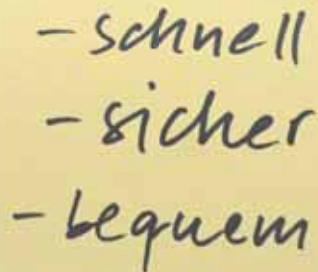 - schnell
- sicher
- bequem